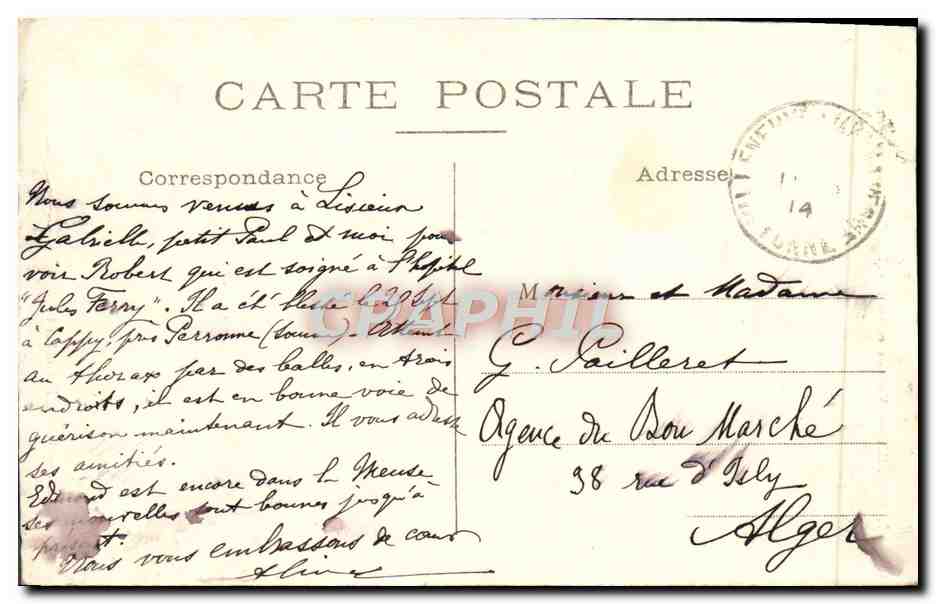 CARTE POSTALE
Correspondance
Adresse
14
YONNE
Nous sommes venus à Lisieux
Gabrielle, petit Paul et moi pour
voir Robert qui est soigné à l'hôpital
"Jules Ferry". Il a été blessé le 25 Sept
à Cappy, près Perronne (Somme). Atteint
au thorax par des balles, en trois
endroits, il est en bonne voie de
guérison maintenant. Il vous adresse
ses amitiés.
Edmond est encore dans la Meuse
ses nouvelles sont bonnes jusqu'à
présent.
Nous vous embrassons de cœur
Monsieur et Madame
G. Pailleret
Agence du Bon Marché
98 rue d'Isly
Alger
CPAPHIL